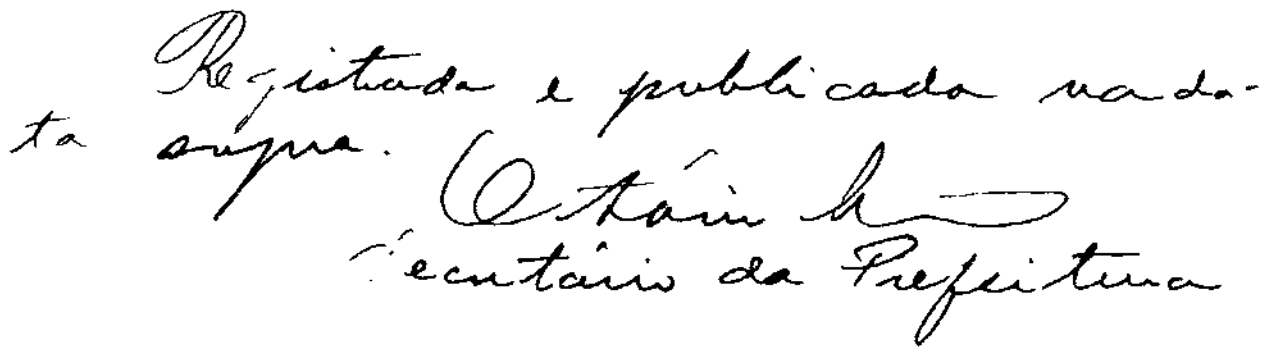 Registrada e publicada na da-
ta supra.
Otávio
Secretário da Prefeitura